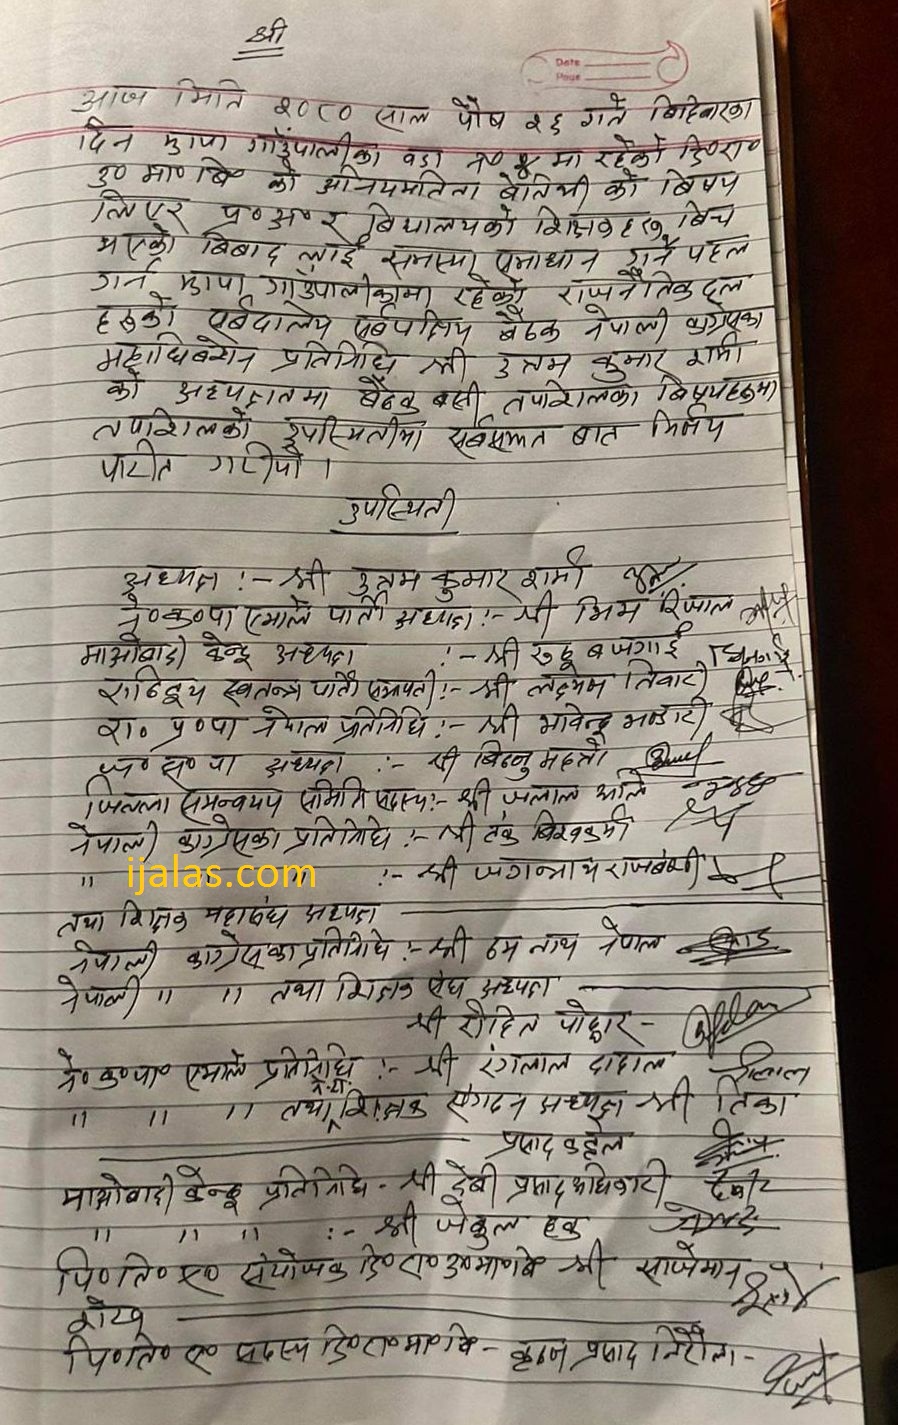 श्री
Date
Page
आज मिति २०८० साल पौष २६ गते बिहिबारका
दिन झापा गाँउपालीका वडा न० ४ मा रहेको डि०रा०
उ० मा० बि० को अनियमतिता बेतिथी को बिषय
लिएर प्र० अ० र बिधालयको शिक्षक हरु बिच
भएको बिबाद लाई समस्या समाधान गर्न पहल
गर्न झापा गाँउपालीकामा रहेको राजनैतिक दल
हरुको सर्बदालिय सर्बपक्षिय बैठक नेपाली काग्रेसका
महाधिबेशन प्रतिनिधि श्री उत्तम कुमार शर्मा
को अध्यक्षतामा बैठक बसी तपशिलका बिषयहरुमा
तपशिलको उपस्थितीमा सर्बसम्मत बाट निर्णय
पारीत गरीयो ।
उपस्थिती
अध्यक्ष :- श्री उत्तम कुमार शर्मा
ने०क०पा एमाले पार्टी अध्यक्ष :- श्री भिम रिजाल
माओबादी केन्द्र अध्यक्ष :- श्री रुद्र बजगाई
राष्ट्रिय स्वतन्त्र पार्टी सभापती :- श्री लक्ष्मण तिवारी
रा० प्र० पा नेपाल प्रतिनिधि :- श्री भावेन्द्र भण्डारी
ज० स० पा अध्यक्ष :- श्री बिष्नु महतो
जिल्ला समन्वयय समिति सदस्य :- श्री जलाल अलि
नेपाली काग्रेसका प्रतिनिधि :- श्री टंक बिश्वकर्मा
" " :- श्री जगन्नाथ राजबंशी
ijalas.com
तथा शिक्षक महासंघ अध्यक्ष
नेपाली काग्रेसका प्रतिनिधि :- श्री हेम नाथ नेपाल
नेपाली " " तथा शिक्षक संघ अध्यक्ष
श्री रोहित पोद्दार -
ने० क० पा० एमाले प्रतिनिधि :- श्री रंगलाल दाहाल
" " " तथा शिक्षक संगठन अध्यक्ष श्री तिका
प्रसाद कडेल
माओबादी केन्द्र प्रतिनिधि - श्री देबी प्रसाद अधिकारी
" " " :- श्री जेकुल हक
पि० ति० ए० संयोजक डि० रा० उ० मा० बि श्री साजेमान
शेख
पि० ति० ए० सदस्य डि० रा० मा० बि - कृष्ण प्रसाद निरौला -